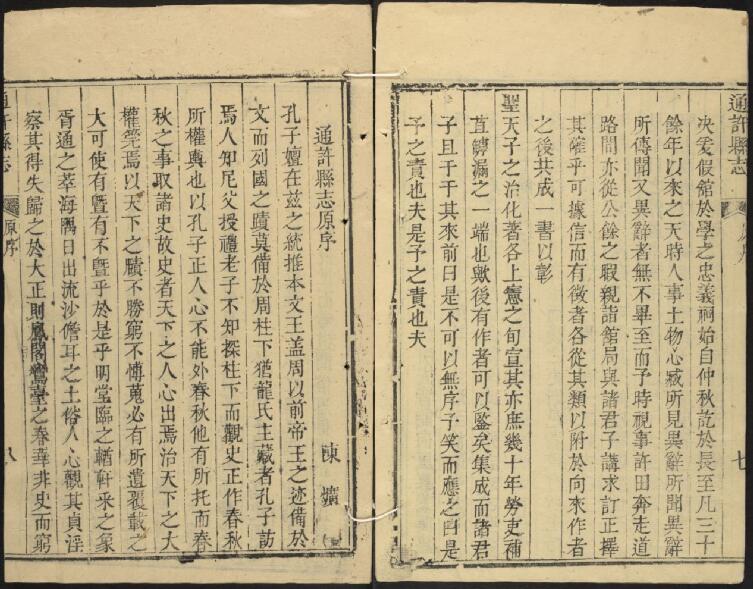 通許縣志
七
決爰假館於學之忠義祠始自仲秋訖於長至凡三十
餘年以來之天時人事土物心臧所見異辭所聞異辭
所傳聞又異辭者無不畢至而予時視事許田奔走道
路間亦從公餘之暇親詣館局與諸君子講求訂正擇
其確乎可據信而有徵者各從其類以附於向來作者
之後共成一書以彰
聖天子之治化著各上憲之旬宣其亦庶幾十年勞吏補
苴罅漏之一端也歟後有作者可以鑒矣集成而諸君
子且于于其來前曰是不可以無序予笑而應之曰是
予之責也夫是予之責也夫
通許縣志原序
陳爌
孔子嬗在兹之統推本文王盖周以前帝王之迹備於
文而列國之蹟莫備於周柱下猶龍氏主藏者孔子訪
焉人知尼父授禮老子不知探柱下而觀史正作春秋
所權輿也以孔子正人心不能外春秋他有所托而春
秋之事取諸史故史者天下之人心出焉治天下之大
權筦焉以天下之賾不勝窮不慱蒐必有所遺覆載之
大可使有暨有不暨乎於是乎明堂臨之輶軒采之象
胥通之萃海隅日出流沙儋耳之土俗人心觀其貞淫
察其得失歸之於大正則鳳閣鸞臺之春華非史而窮
通許縣志
原序
八